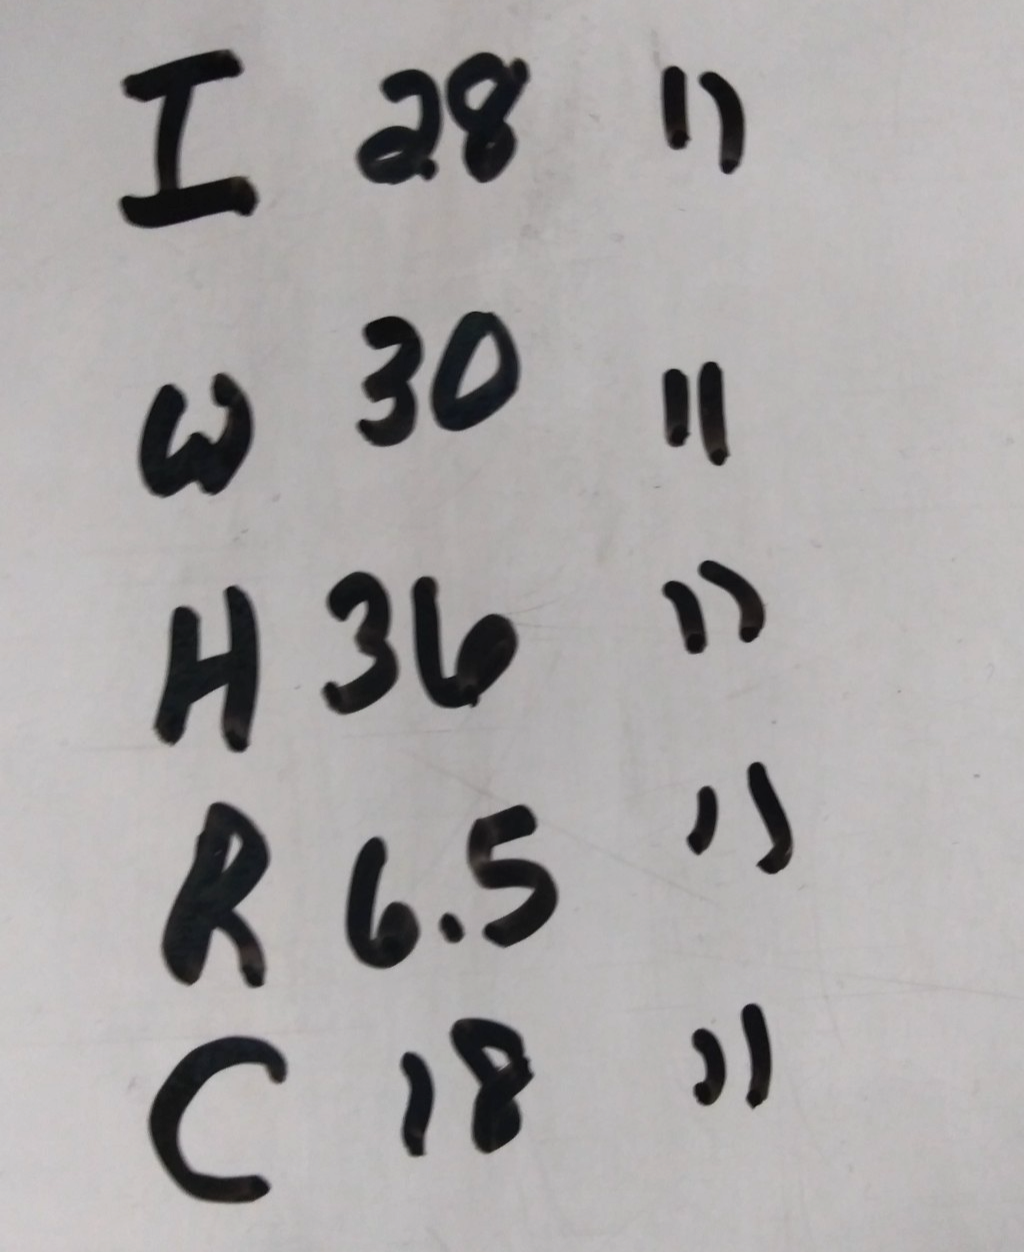 I 28 "
W 30 "
H 36 "
R 6.5 "
C 18 "